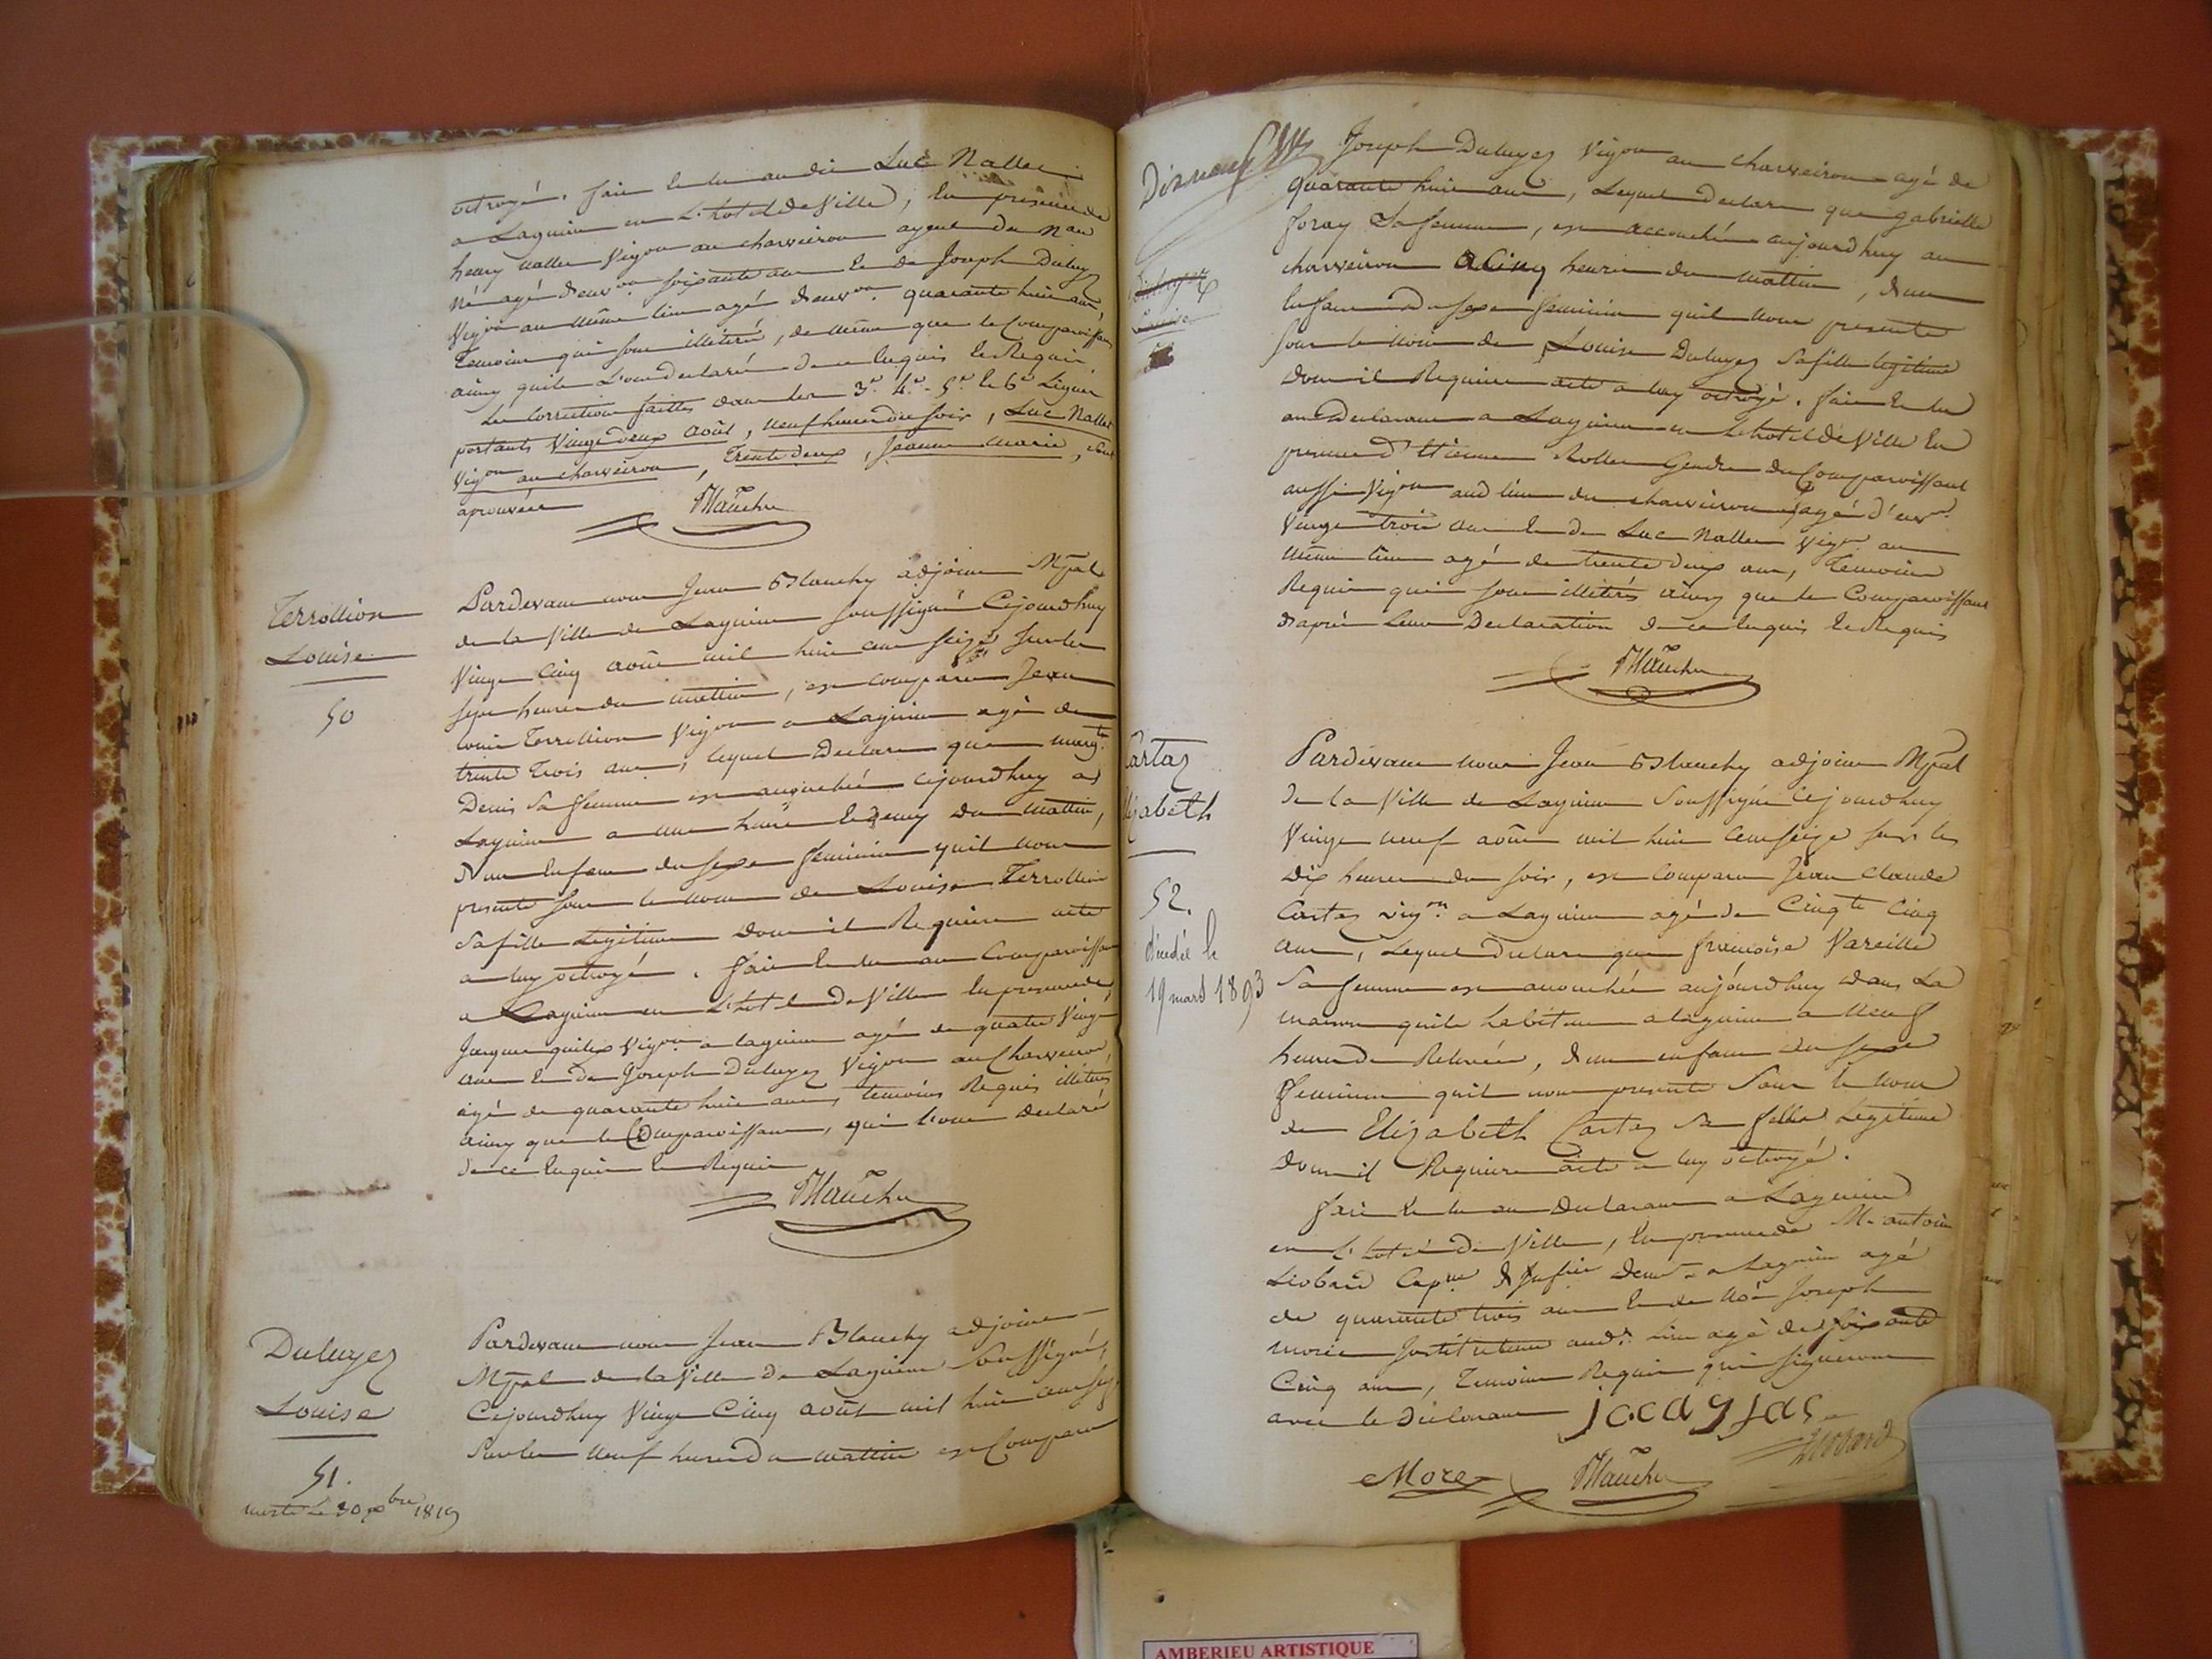 octroyé. fait et lu au dit Luc Nallet
a Lagnieu en L'hotel de Ville, En presence de
henry nallet Vigon au charveiron ayeul du Nau
Né agé d'envon soixante ans et de Joseph Duluyez
Vigon au même lieu agé d'envon quarante huit ans,
Temoins qui sont illétéré, de même que le Comparoissant
ainsy quils L'ont declaré de ce Enquis et Requis
Les Corrections faittes dans les 3e. 4e. 5e. et 6e Lignes
portants Vingt deux août, neuf heures du soir, Luc Nallet
Vigon au charveiron, Trente deux, Jeanne Marie, sont
aprouvées
Blanchy
Terrollion
Louise
50
Pardevant nous Jean Blanchy adjoint Mpal
de la Ville de Lagnieu soussigné Cejourdhuy
Vingt Cinq août mil huit cent seize sur les
sept heures du mattin, est comparu Jean
Louis Terrollion Vigon a Lagnieu agé de
trente trois ans, lequel Declare que margte
Denis sa femme est accouchée cejourdhuy a
Lagnieu a une heure et demy du mattin,
d'un Enfant du sexe feminin quil nous
presente sous le nom de Louise Terrollion
sa fille Legitime dont il Requiere acte
a luy octroyé. fait et lu au Comparoissant
a Lagnieu en L'hotel de Ville En presence de
Jacques Vigon a lagnieu agé de quatre Vingt
ans et de Joseph Duluyez Vigon au Charveiron
agé de quarante huit ans, temoins Requis illétérés
ainsy que le Comparoissant, qui l'ont declaré
de ce Enquis et Requis
Blanchy
Duluyez
Louise
51.
morte le 30 xbre 1819
Pardevant nous Jean Blanchy adjoint
Mpal de la Ville de Lagnieu Soussigné,
Cejourdhuy Vingt Cinq août mil huit cent seize
Sur les neuf heures du mattin est Comparu
Dixneuf
Joseph Duluyez Vigon au charveiron agé de
quarante huit ans, Lequel Declare que gabrielle
foray Sa femme, est accouchée aujourdhuy au
charveiron a Cinq heures du mattin, d'un
Enfant du sexe feminin quil nous presente
sous le nom de Louise Duluyez sa fille legitime
dont il Requiere acte a luy octroyé. fait et lu
au Declarant a Lagnieu en L'hotel de Ville En
presence d'Etienne Rollet Gendre du Comparoissant
aussi Vigon aud lieu du charveiron agé d'envon
Vingt trois ans et de Luc Nallet Vigon au
même lieu agé de trente deux ans, Temoins
Requis qui sont illétérés ainsy que le Comparoissant
d'après Leur Declaration de ce Enquis et Requis
Blanchy
Duluyez
Louise
Cartaz
Elizabeth
52.
décédée le
19 mars 1893
Pardevant nous Jean Blanchy adjoint Mpal
de la Ville de Lagnieu Soussigné Cejourdhuy
Vingt neuf août mil huit Cent seize sur les
dix heures du soir, est Comparu Jean Claude
Cartaz vigon a Lagnieu agé de Cinqte Cinq
ans, Lequel declare que françoise Vareille
Sa femme est accouchée aujourdhuy dans La
maison quils habitent a lagnieu a Neuf
heures de Relevée, d'un enfant du sexe
feminin quil nous presente Sous le Nom
de Elizabeth Cartaz sa fille Legitime
dont il Requiere acte a luy octroyé.
fait et lu au declarant a Lagnieu
en L'hotel de Ville, En presence de Mr antoine
Liobard Capne D'Infrie demt a Lagnieu agé
de quarante trois ans et de Joseph
morée Instituteur audt lieu agé de soixante
Cinq ans, Temoins Requis qui signeront
avec le Déclarant
More
Blanchy
Liobard
AMBERIEU ARTISTIQUE